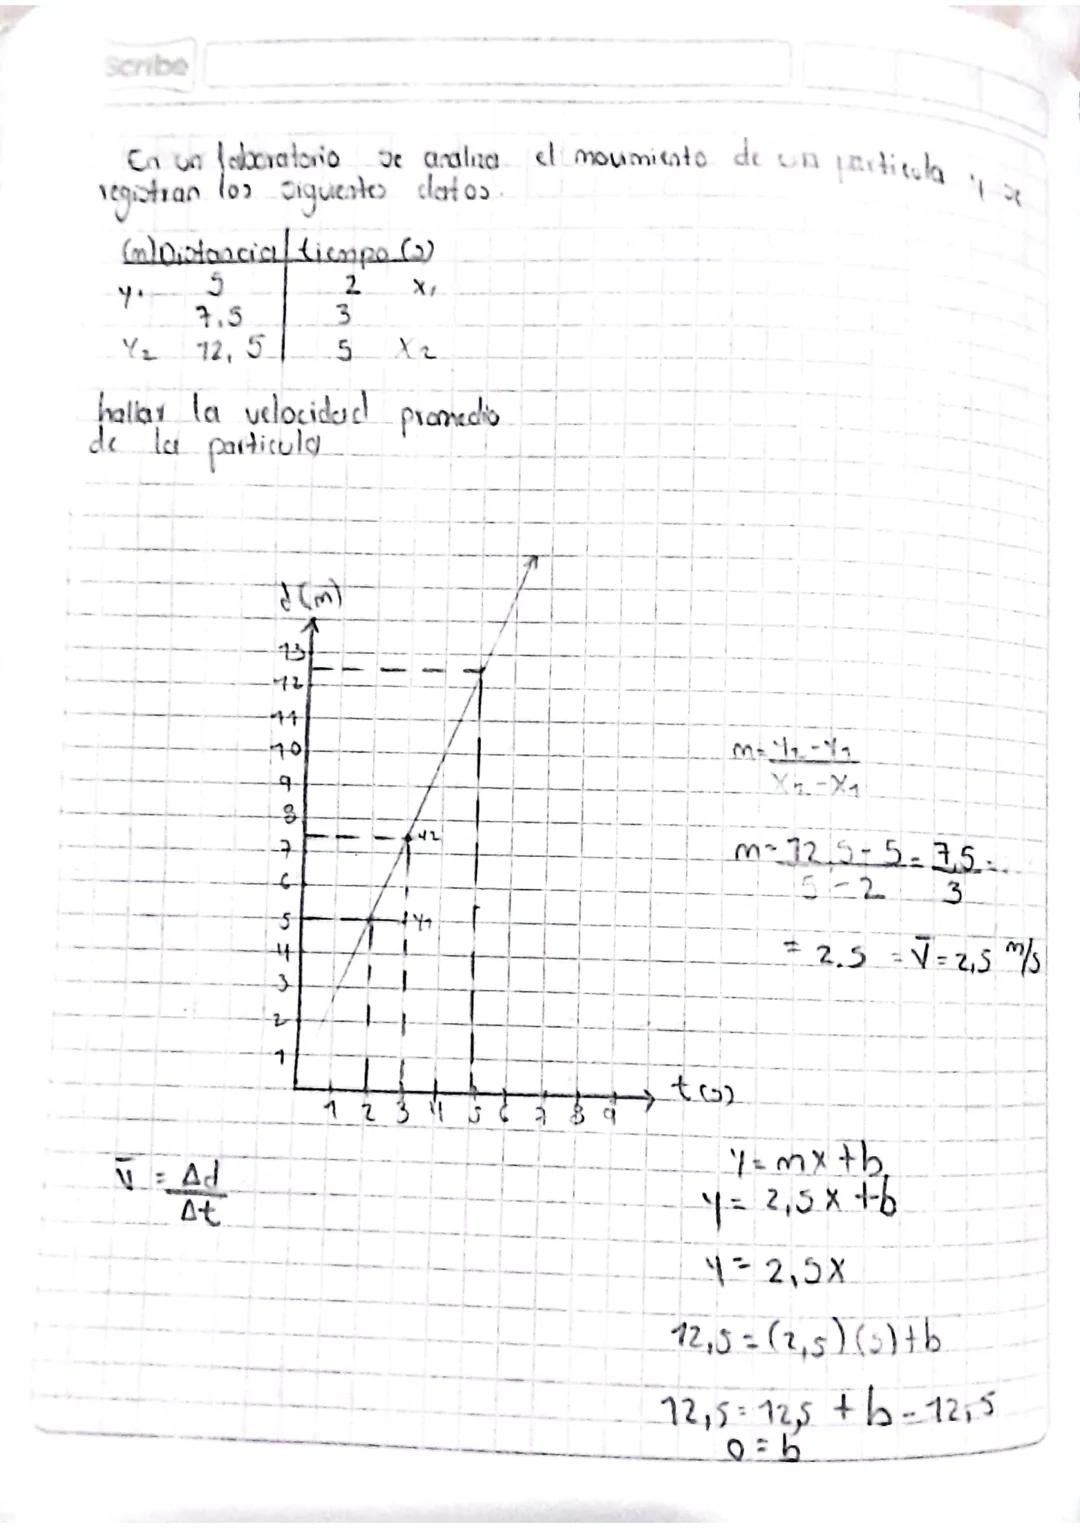 Scribe
En un laboratorio se analiza el movimiento de una particula y se
registran los siguientes datos.
(m) Distancia | tiempo (s)
y1 5 2 x1
7,5 3
y2 12,5 5 x2
hallar la velocidad promedio
de la particula
d (m)
13
12
11
10
9
8
7
6
5
4
3
2
1
y2
y1
1 2 3 4 5 6 7 8 9
t (s)
m = y2 - y1
x2 - x1
m = 12,5 - 5 = 7,5 = ...
5 - 2 3
= 2.5 = v̄ = 2,5 m/s
v̄ = Δd
Δt
y = mx + b
y = 2,5x + b
y = 2,5x
12,5 = (2,5)(5) + b
12,5 = 12,5 + b - 12,5
0 = b